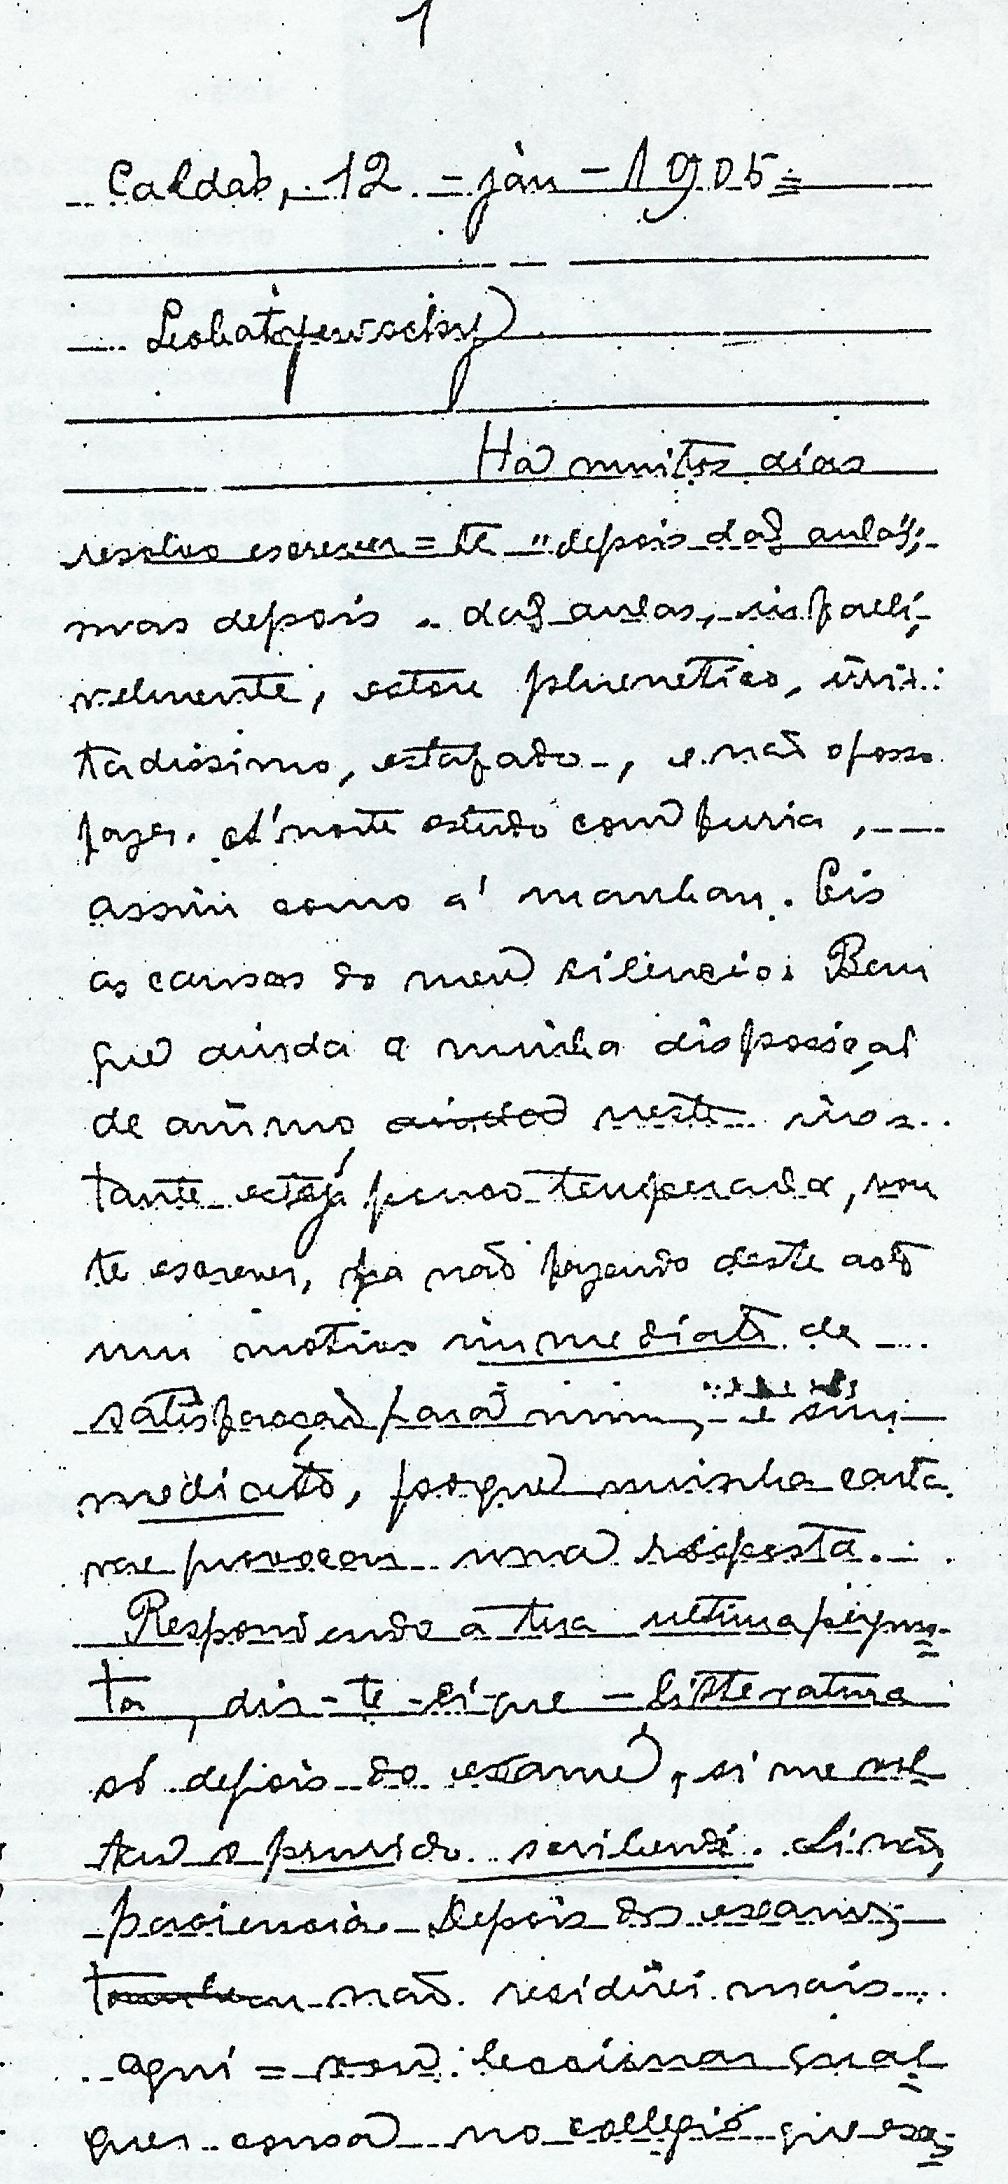 1
Caldas, 12 = jan - 1905 =
Lobatoyewscky
Ha muitos dias
resolvo escrever=te "depois das aulas";
mas depois das aulas, infalli-
velmente, estou phrenetico, irri-
tadissimo, estafado, e não o posso
fazer. A' noite estudo com furia,
assim como a' manhan. Eis
as causas do meu silencio. Bem
que ainda a minha disposiçaõ
de animo, ainda neste ins-
tante esteja pouco temperada, vou
te escrever, ja não fazendo deste acto
um motivo immediato de
satisfacção para mim, e sim
mediato, porque minha carta
vae provocar uma resposta.
Respondendo a tua ultima pergun-
ta, dir-te-ei que - litteratura
só depois do exame, si me vol-
tar o prurido scribendi. Si não,
paciencia. Depois do exame,
não residirei mais
aqui = vou leccionar qual-
quer cousa no collegio que